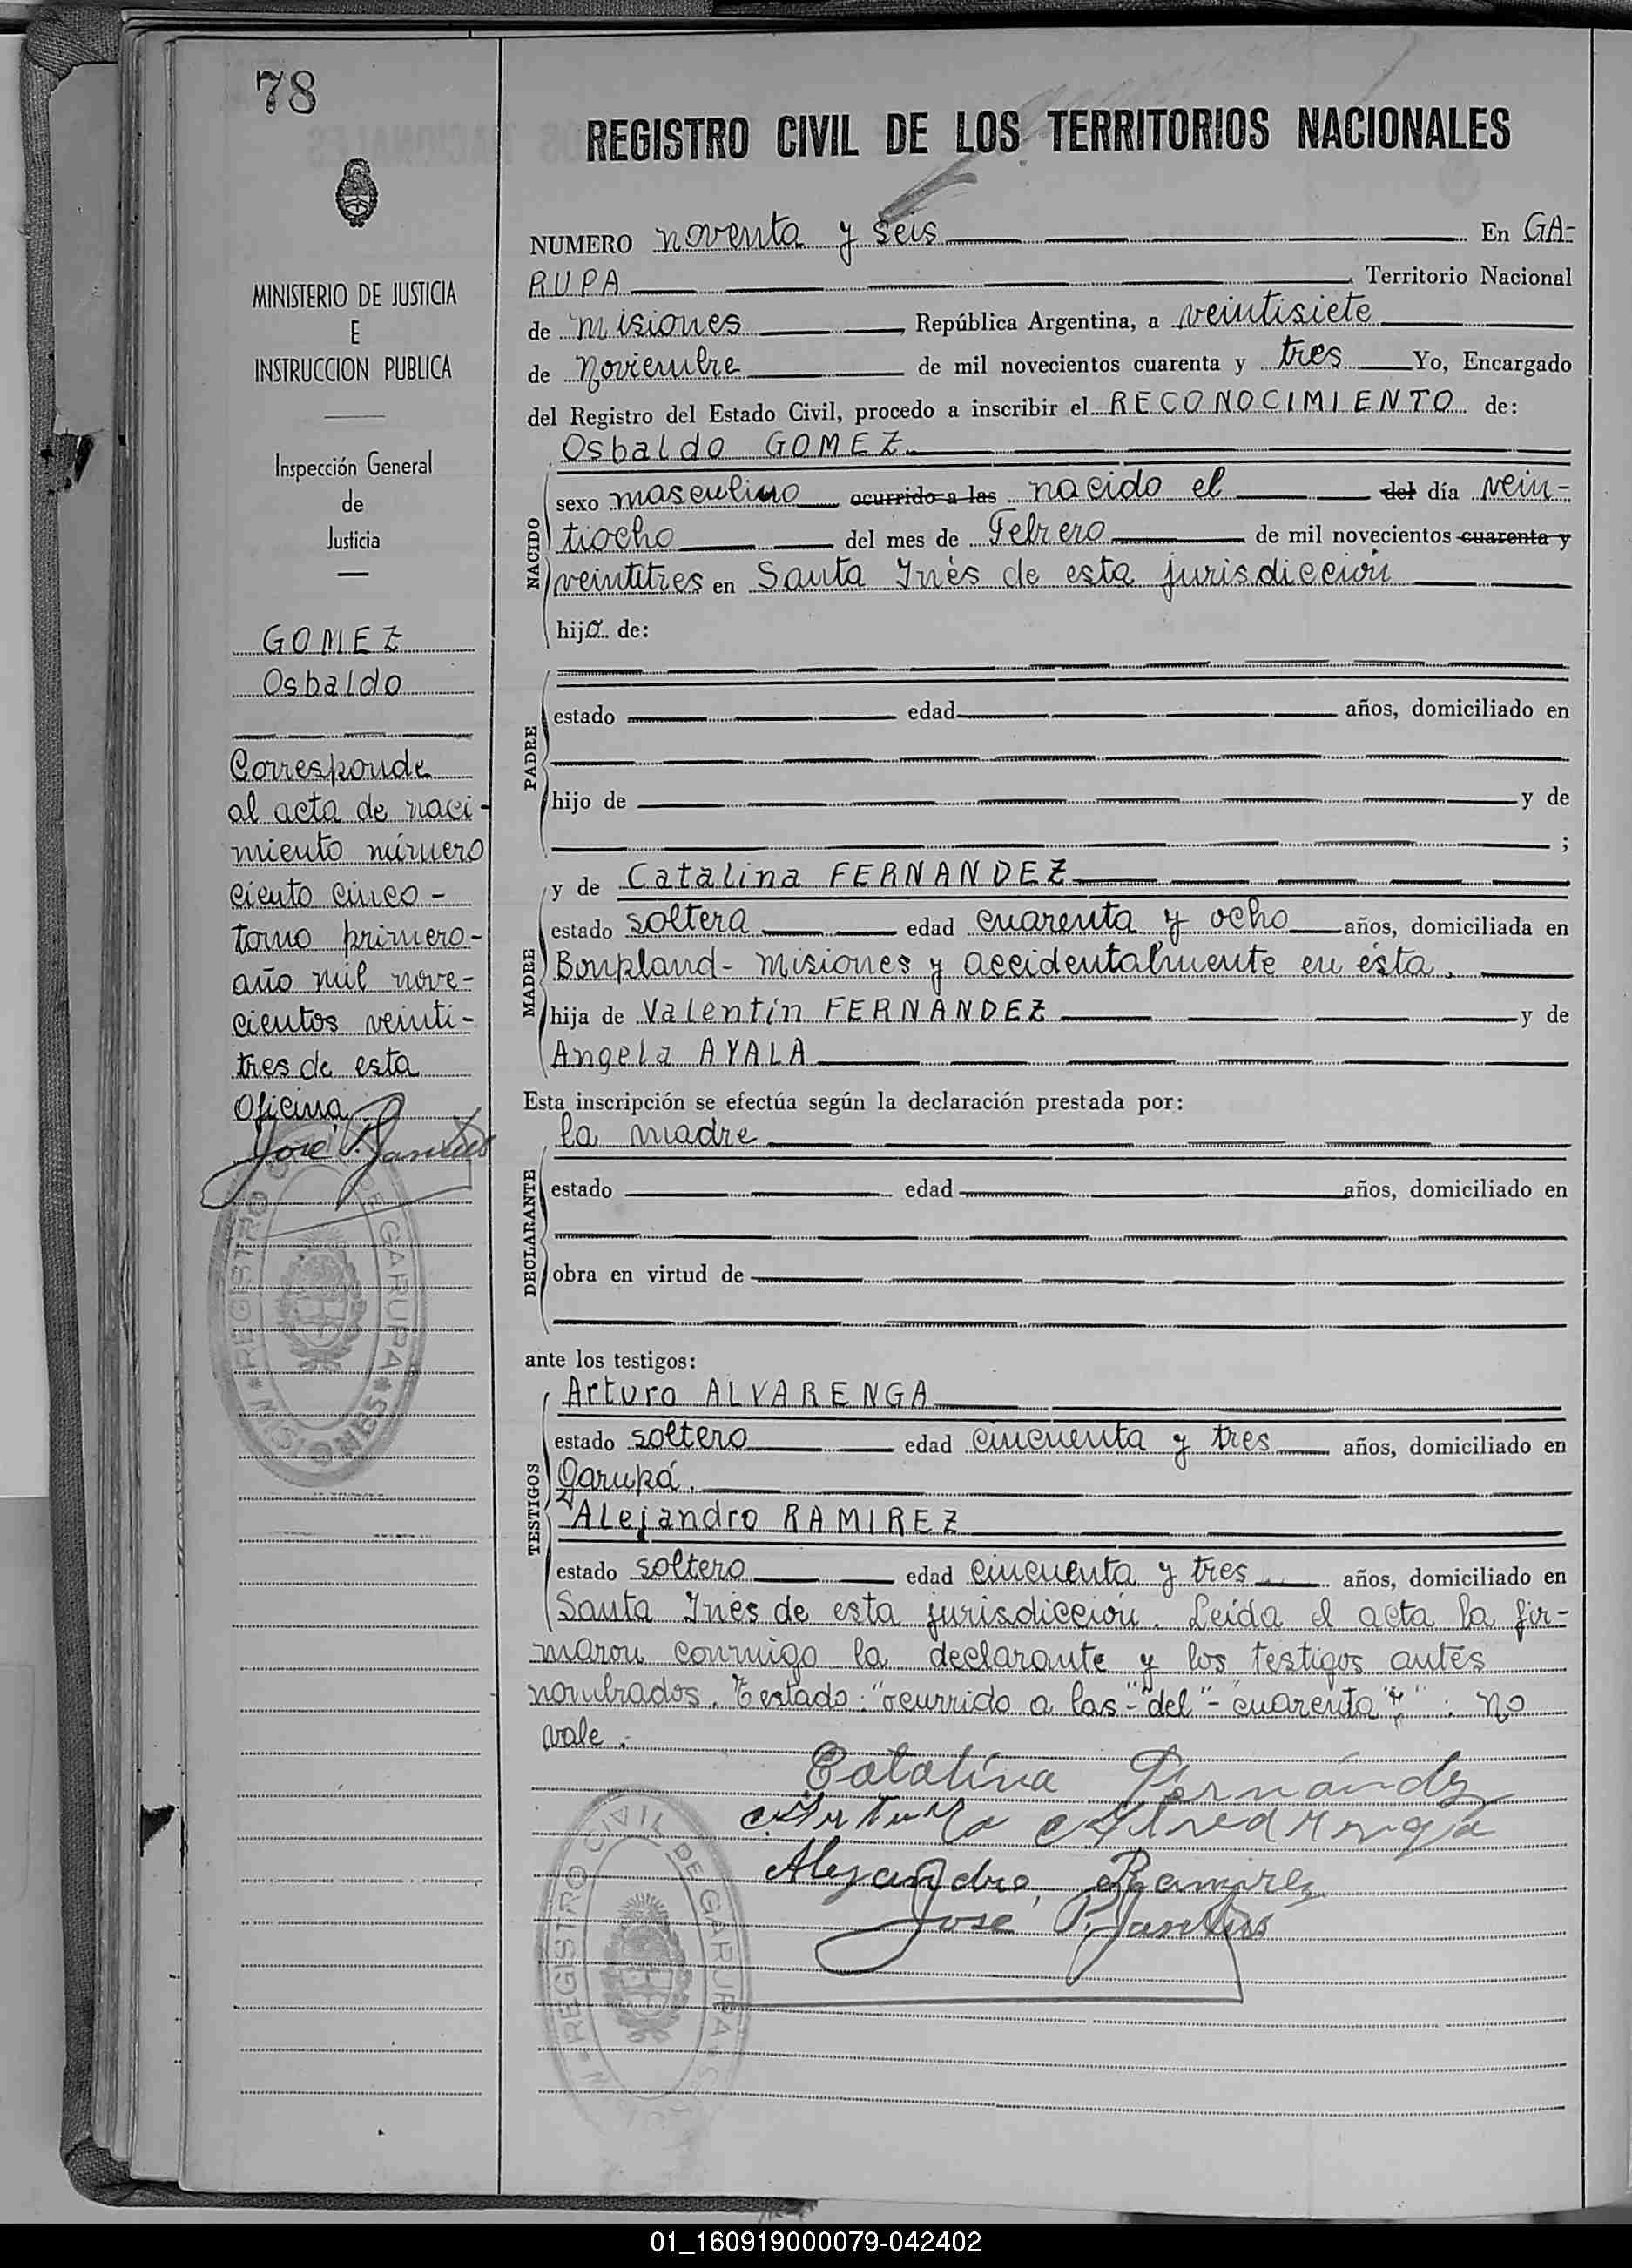 78
MINISTERIO DE JUSTICIA
E
INSTRUCCION PUBLICA
Inspección General
de
Justicia
GOMEZ
Osbaldo
Corresponde
al acta de naci-
miento número
ciento cinco -
tomo primero-
año mil nove-
cientos veinti-
tres de esta
Oficina
José P.
REGISTRO DE GARUPA * MISIONES *
REGISTRO CIVIL DE LOS TERRITORIOS NACIONALES
NUMERO noventa y seis En GA-
RUPA Territorio Nacional
de Misiones, República Argentina, a veintisiete
de Noviembre de mil novecientos cuarenta y tres Yo, Encargado
del Registro del Estado Civil, procedo a inscribir el RECONOCIMIENTO de:
Osbaldo GOMEZ
NACIDO
sexo masculino ocurrido a las nacido el del día vein-
tiocho del mes de Febrero de mil novecientos cuarenta y
veintitres en Santa Inés de esta jurisdicción
hijo de:
PADRE
estado edad años, domiciliado en
hijo de y de
;
MADRE
y de Catalina FERNANDEZ
estado soltera edad cuarenta y ocho años, domiciliada en
Bonpland - Misiones y accidentalmente en ésta.
hija de Valentín FERNANDEZ y de
Angela AYALA
Esta inscripción se efectúa según la declaración prestada por:
la madre
DECLARANTE
estado edad años, domiciliado en
obra en virtud de
ante los testigos:
TESTIGOS
Arturo ALVARENGA
estado soltero edad cincuenta y tres años, domiciliado en
Garupá.
Alejandro RAMIREZ
estado soltero edad cincuenta y tres años, domiciliado en
Santa Inés de esta jurisdicción. Leída el acta la fir-
maron conmigo la declarante y los testigos antes
nombrados. Testado: "ocurrido a las"-"del"-"cuarenta y": no
vale.-
Catalina Fernández
Arturo
Alejandro Ramirez
José P.
REGISTRO CIVIL DE GARUPA
01_160919000079-042402